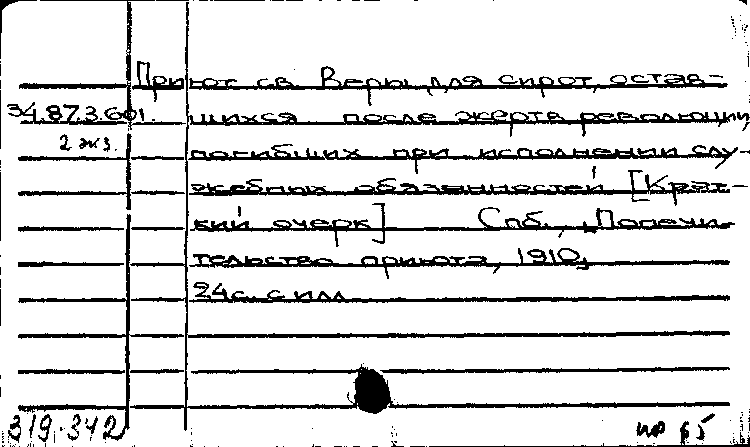 Приют св. Веры для сирот, остав-
34.87.3.601. шихся после жертв революции,
2 экз. погибших при исполнении слу-
жебных обязанностей [Крат-
кий очерк] Спб., Попечи-
тельство приюта, 1910,
24с. с илл
319.342 ИР 65